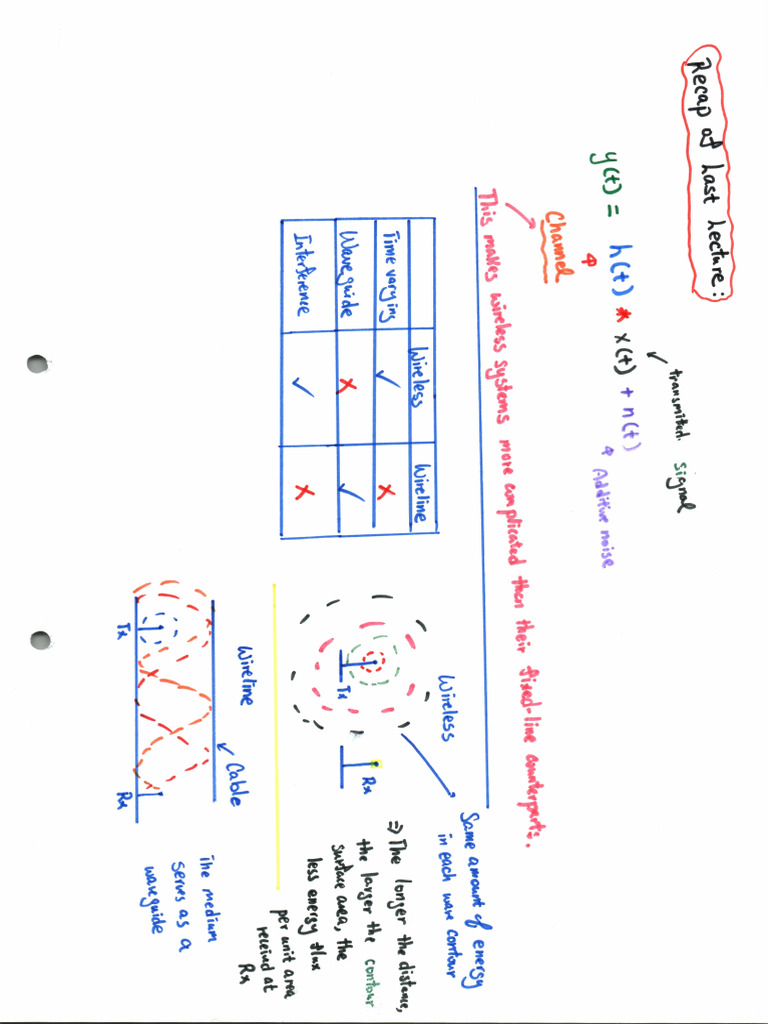 Recap of Last Lecture:
y(t) = h(t) * x(t) + n(t)
transmitted signal
Additive noise
Channel
This makes wireless systems more complicated then their fixed-line counterparts.
Wireless Wireline
Time varying ✓ ✗
Waveguide ✗ ✓
Interference ✓ ✗
Wireless
Tx
Rx
Same amount of energy
in each wave contour
=> The longer the distance,
the larger the contour
surface area, the
less energy flux
per unit area
received at
Rx
Wireline
Cable
Tx
Rx
The medium
serves as a
waveguide